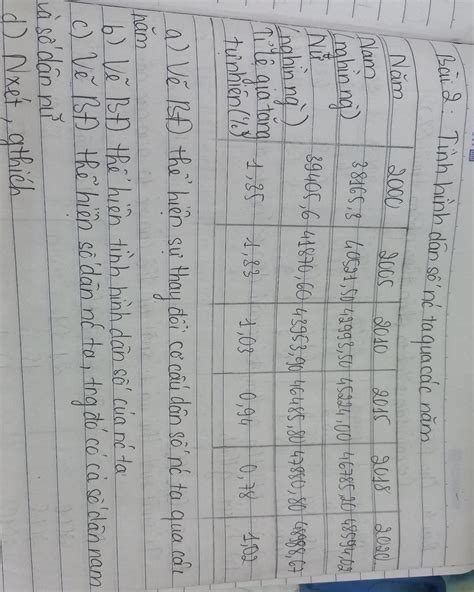 Bài 2: Tình hình dân số nc ta qua các năm
Năm 2000 2005 2010 2015 2018 2020
Nam (nghìn ng) 38165,3 40521,50 42993,50 45224,00 46785,20 48594,02
Nữ (nghìn ng) 39405,6 41870,60 43953,90 46485,80 47880,80 48988,67
Tỉ lệ gia tăng tự nhiên (%) 1,35 1,33 1,03 0,94 0,78 1,02
a) Vẽ BĐ thể hiện sự thay đổi cơ cấu dân số nc ta qua các
năm
b) Vẽ BĐ thể hiện tình hình dân số của nc ta
c) Vẽ BĐ thể hiện số dân nc ta, trg đó có cả số dân nam
và số dân nữ
d) Nxét, gthích